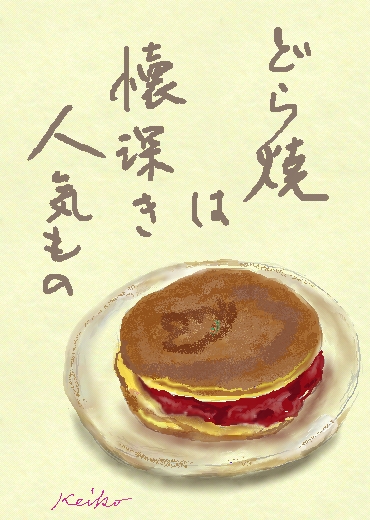 どら焼
は
懐深き
人気もの
Keiko